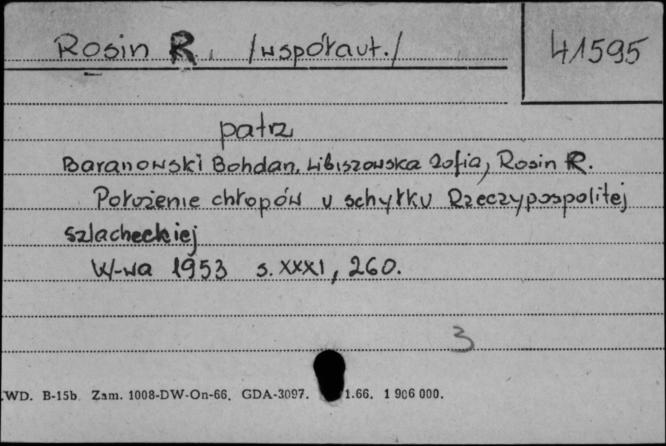 Rosin R. /współaut./ 41595
patrz
Baranowski Bohdan, Libiszowska Zofia, Rosin R.
Położenie chłopów u schyłku Rzeczypospolitej
szlacheckiej
W-wa 1953 s. XXXI, 260.
3
WD. B-15b. Zam. 1008-DW-On-66. GDA-3097. 1.66. 1 906 000.